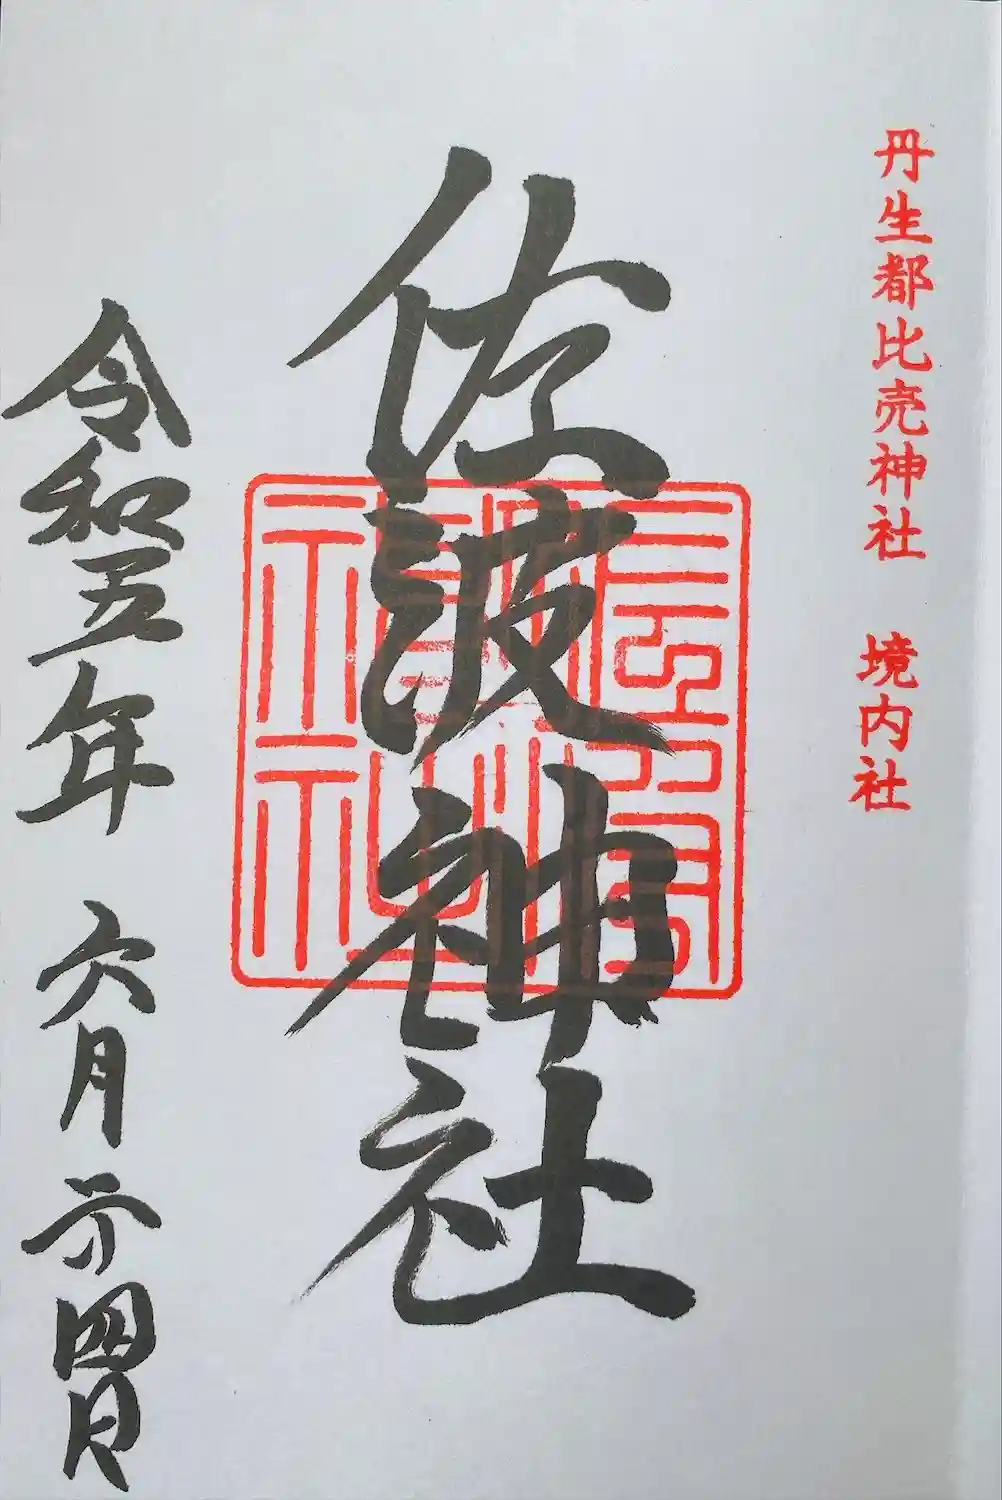 丹生都比売神社 境内社
佐波神社
令和五年 六月廿四日